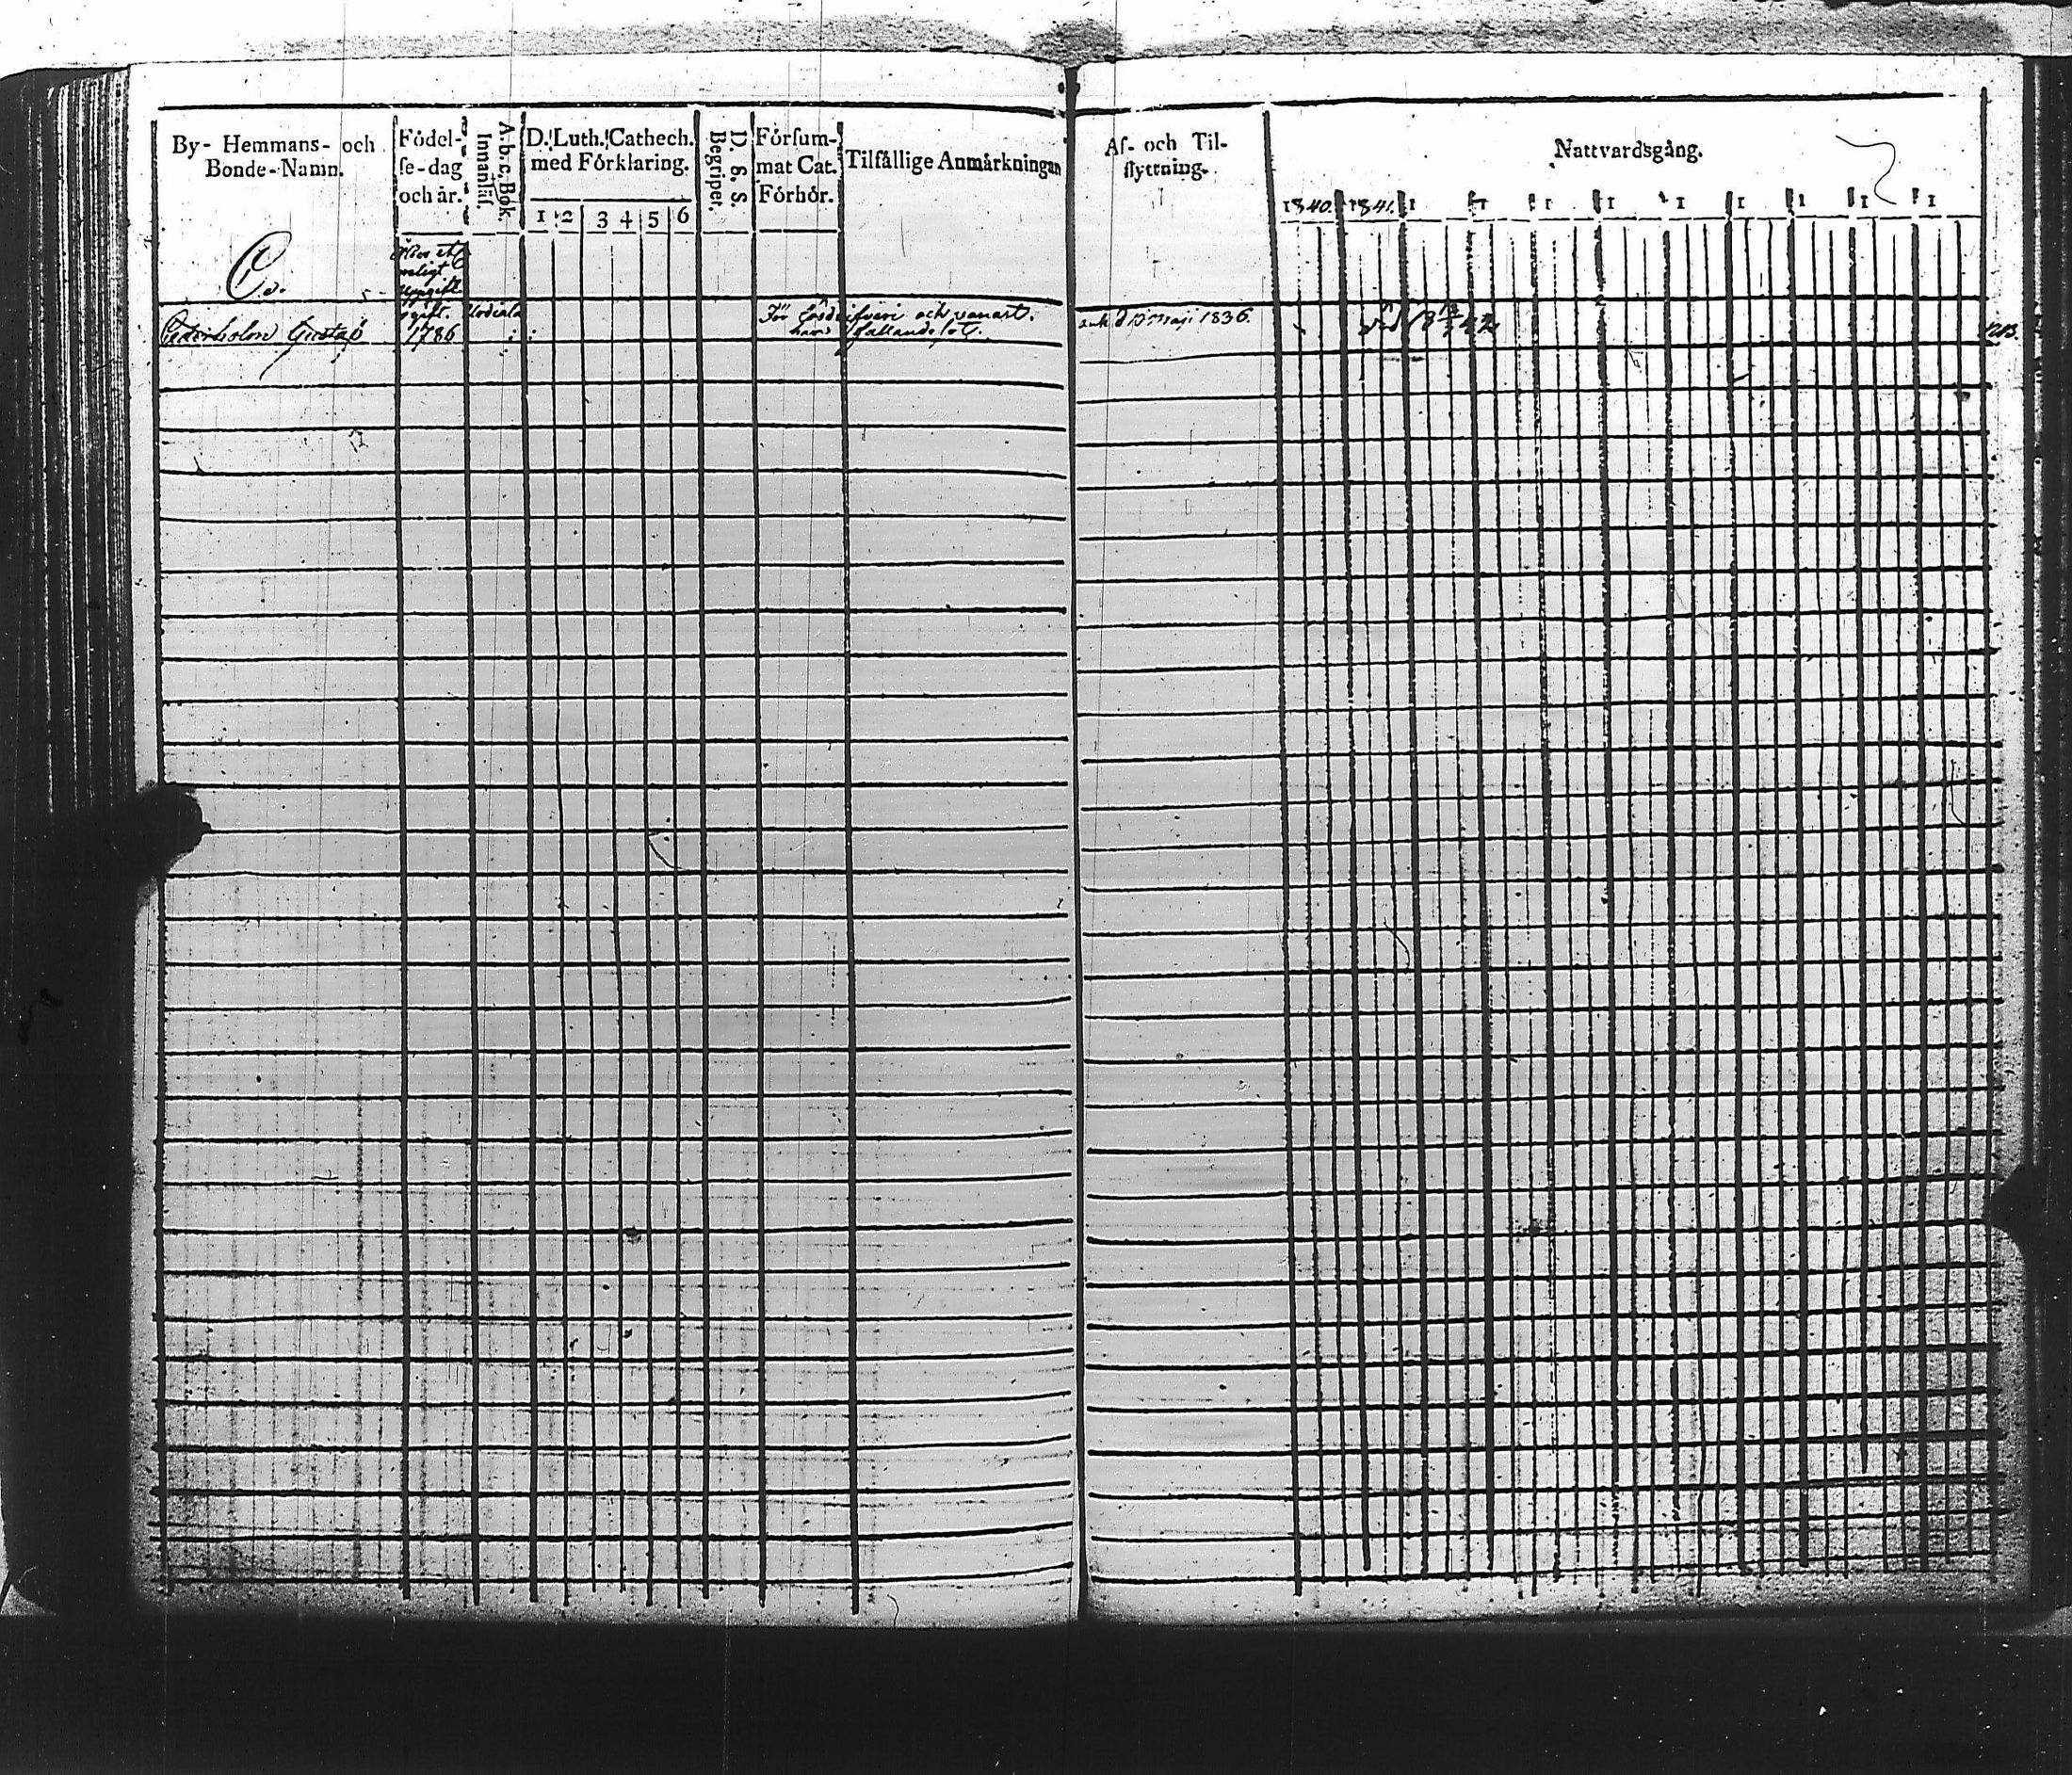 By- Hemmans- och
Bonde-Namn.
Födel-
se-dag
och år.
A,b,c,Bok.
Innanläs.
D. Luth. Cathech.
med Förklaring.
1 2 3 4 5 6
D. S. S.
Begriper.
Försum-
mat Cat.
Förhör.
Tilfällige Anmärkningar
Af- och Til-
flyttning.
Nattvardsgång.
1840. 1841. 1 1 1 1 1 1 1 1 1
C.
uppgift
Cederholm Gustaf
1786
För lösdrifveri och vanart.
fallande sot.
ank d 19 Maji 1836.